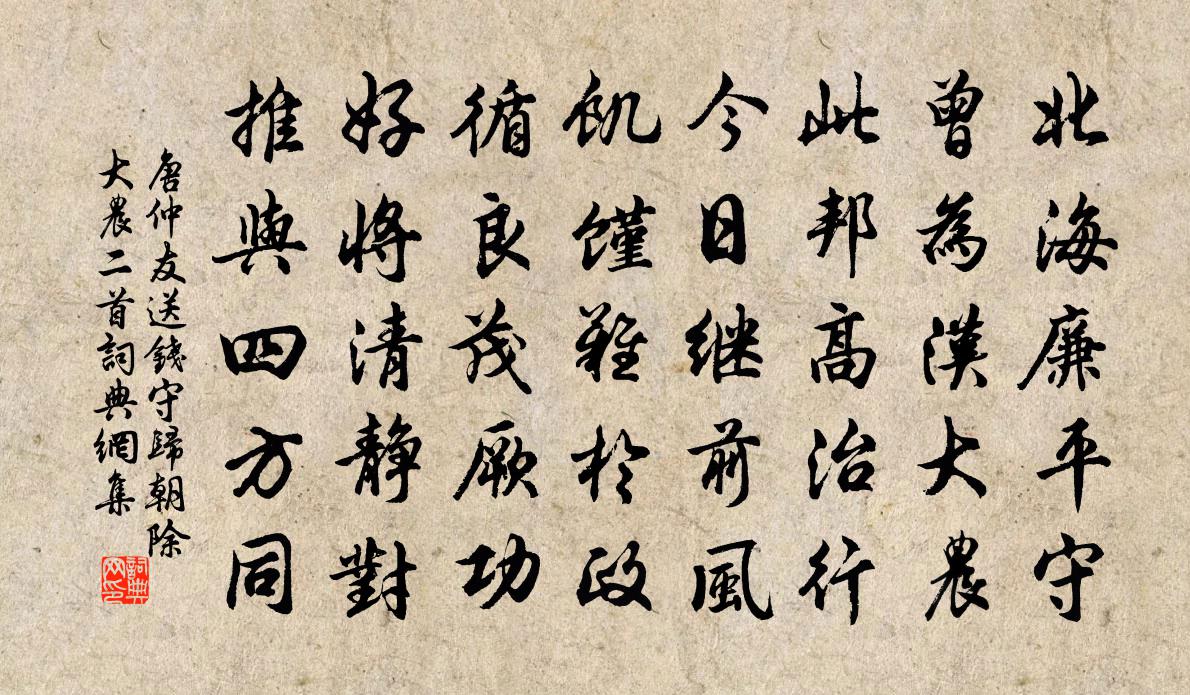 北海廉平守
曾為漢大農
此邦高治行
今日継前風
飢饉難於政
循良茂厥功
好將清靜對
推與四方同
唐仲友送錢守歸朝除
大農二首詞典網集
詞典
网印